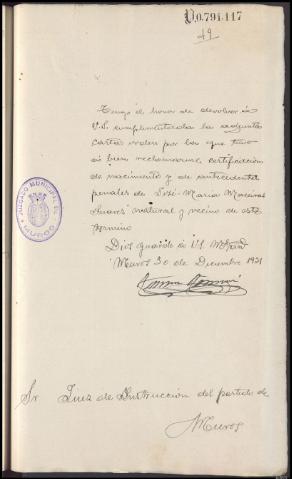 0.791.117
49
Tengo el honor de devolver a
V.S. cumplimentada la adjunta
carta orden por la que tuvo
a bien reclamarme certificación
de nacimiento y de antecedentes
penales de José María Moreiras
Suares natural y vecino de este
término
Dios guarde a V.S. 
Muros 30 de Diciembre 1931
JUZGADO MUNICIPAL DE
MUROS
Sr Juez de Instruccion del partido de
Muros